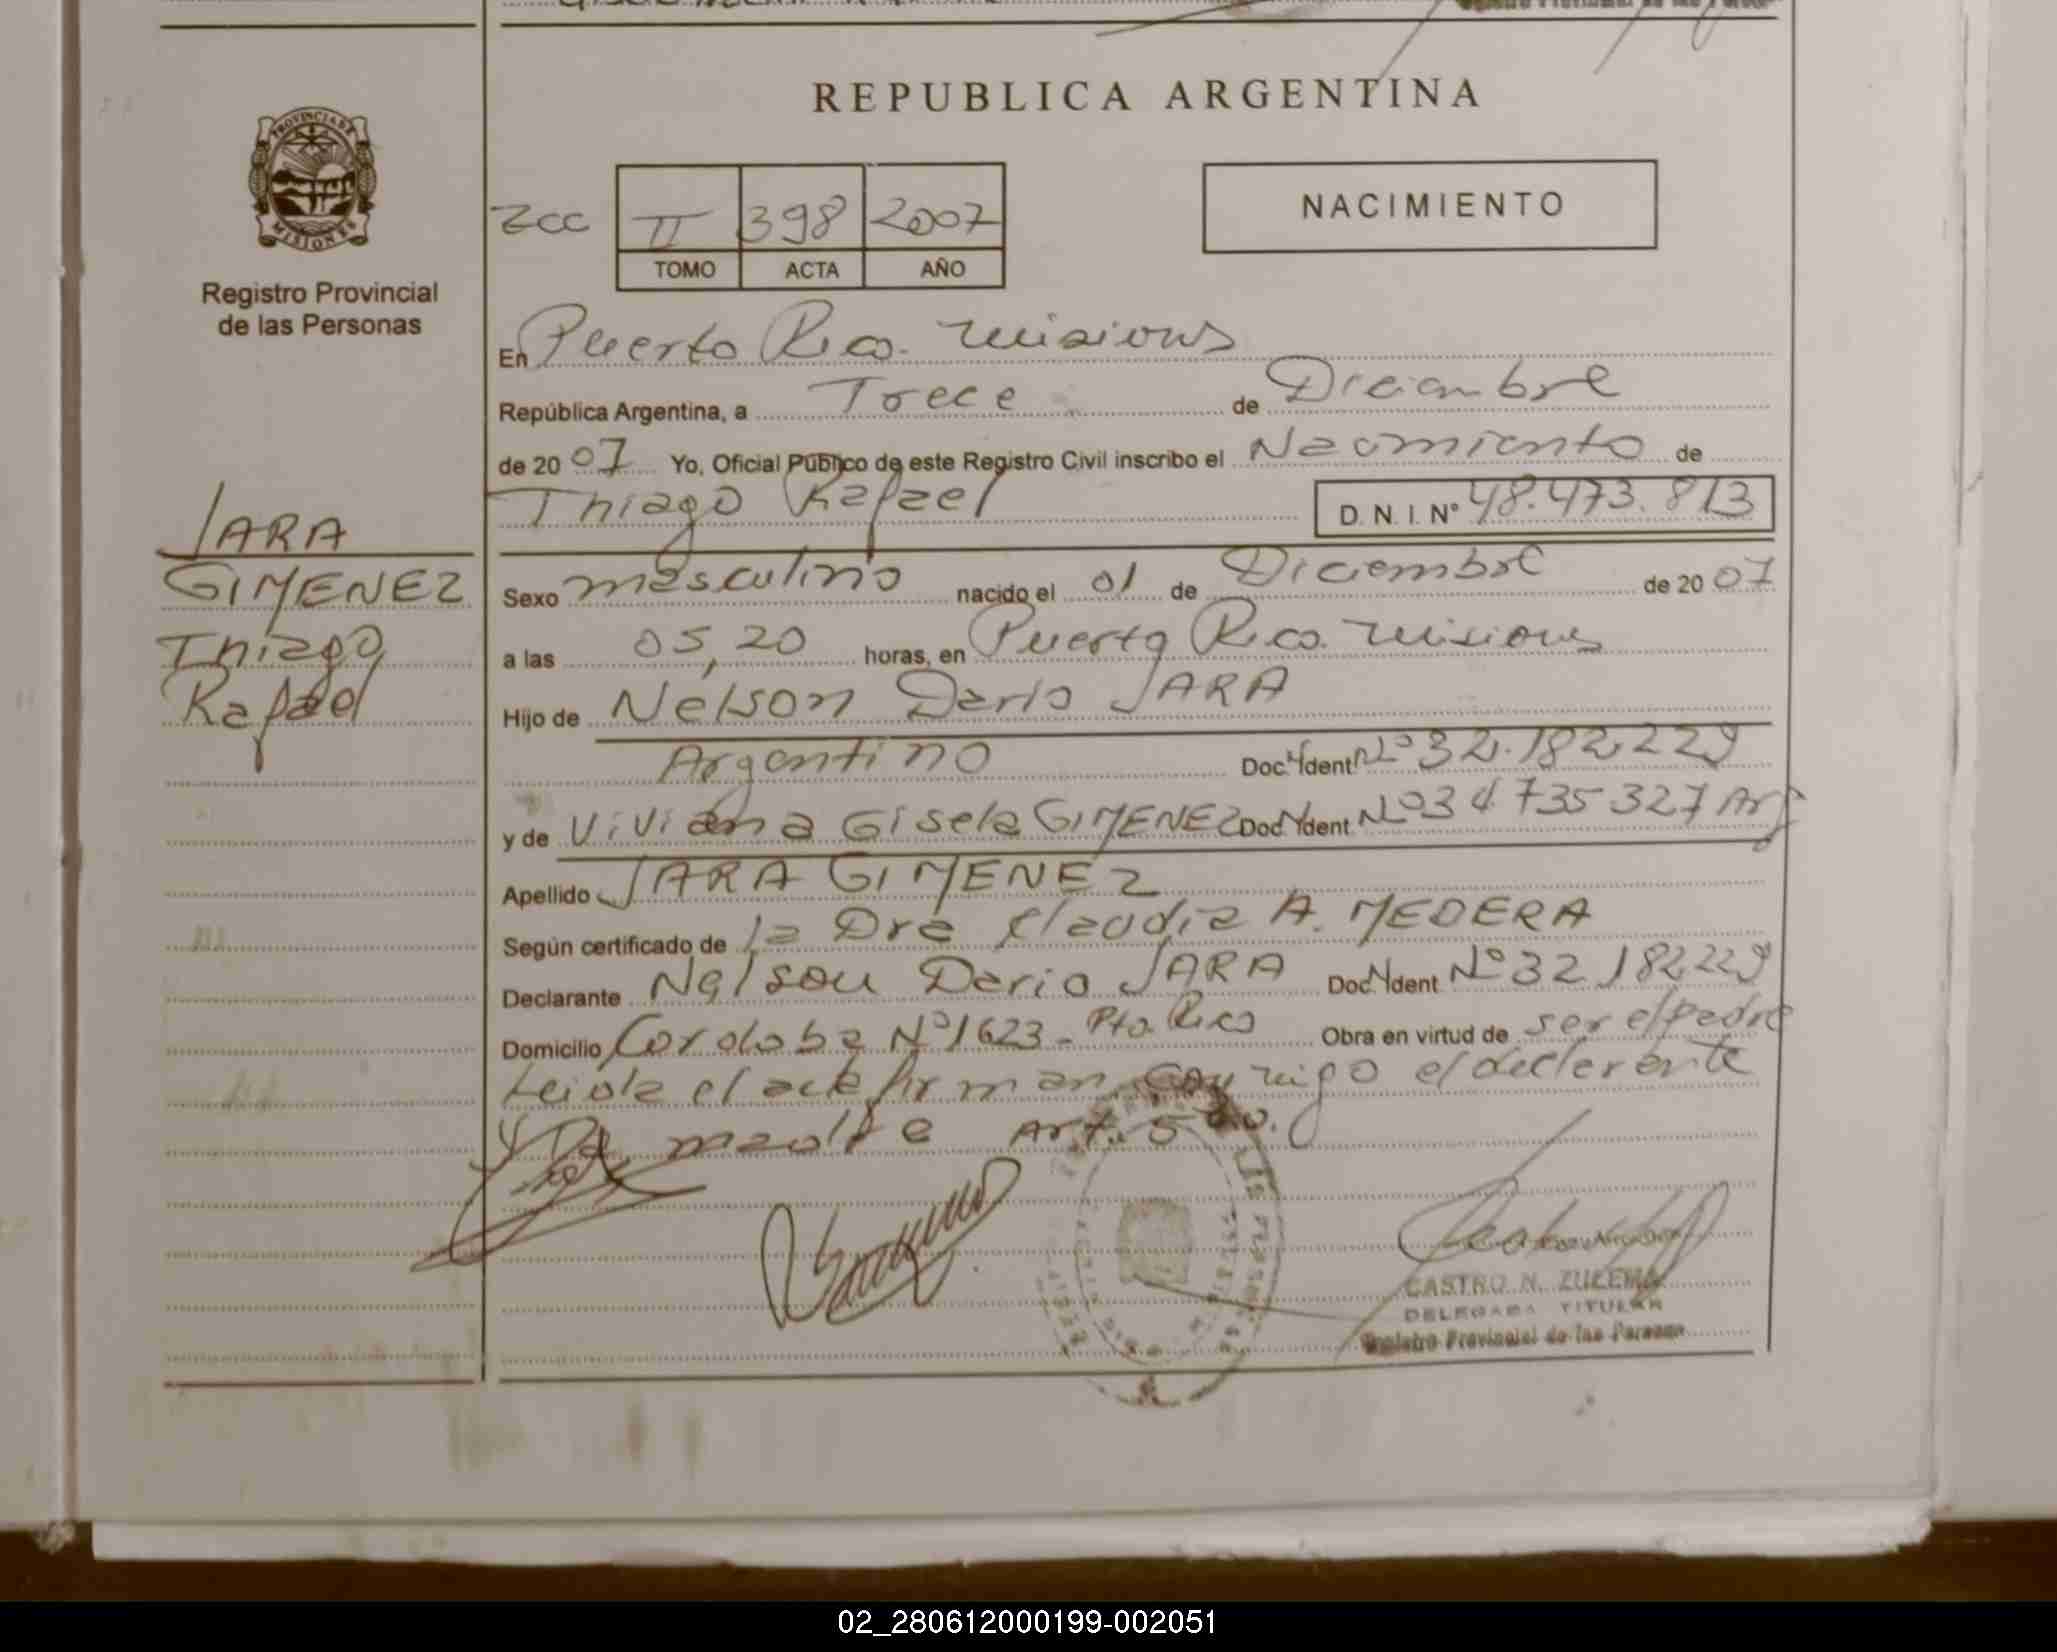 REPUBLICA ARGENTINA
PROVINCIA DE
MISIONES
Registro Provincial
de las Personas
NACIMIENTO
zcc II 398 2007
TOMO ACTA AÑO
En Puerto Rico. Misiones
República Argentina, a Trece de Diciembre
de 20 07 Yo, Oficial Público de este Registro Civil inscribo el Nacimiento de
Thiago Rafael D. N. I. N° 48.473.813
JARA
GIMENEZ
Thiago
Rafael
Sexo masculino nacido el 01 de Diciembre de 20 07
a las 05,20 horas, en Puerto Rico. Misiones
Hijo de Nelson Dario JARA
Argentino Doc. Ident N° 32.182.229
y de Viviana Gisela GIMENEZ Doc. Ident N° 34 735 327 Arg
Apellido JARA GIMENEZ
Según certificado de la Dra Claudia A. MEDERA
Declarante Nelson Dario JARA Doc. Ident N° 32 182229
Domicilio Cordoba N° 1623 - Pto. Rico Obra en virtud de ser el padre
Leida el acta firman conmigo el declarante
y la madre Art. 5
CASTRO N. ZULEMA
DELEGADA TITULAR
Registro Provincial de las Personas
02_280612000199-002051